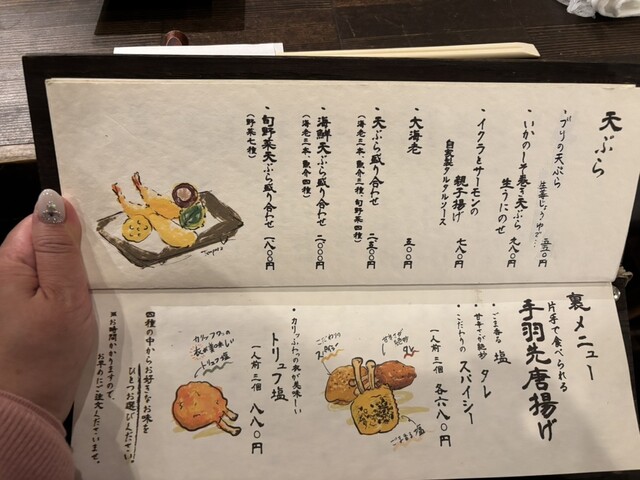 天ぷら
・ブリの天ぷら
生姜じょうゆで… 五五〇円
・いかのしそ巻き天ぷら
生うにのせ 九八〇円
・イクラとサーモンの
親子揚げ 七八〇円
自家製タルタルソース
・大海老 五〇〇円
・天ぷら盛り合わせ 二、二五〇円
(海老二本、魚介二種、旬野菜四種)
・海鮮天ぷら盛り合わせ 二、一〇〇円
(海老二本、魚介四種)
・旬野菜天ぷら盛り合わせ 一、八〇〇円
(野菜七種)
裏メニュー
片手で食べられる
手羽先唐揚げ
・ごま香る 塩
・甘辛さが絶妙 タレ
・こだわりの スパイシー
一人前 三個 各六八〇円
こだわりスパイシー
甘辛さが絶妙タレ
ごま香る塩
・カリッふわっの衣が美味しーい
トリュフ塩
一人前 三個 八八〇円
カリッフワッの
衣が美味しい
トリュフ塩
四種の中からお好きなお味を
ひとつお選びください。
※お時間かかりますので、
お早めにご注文くださいませ。